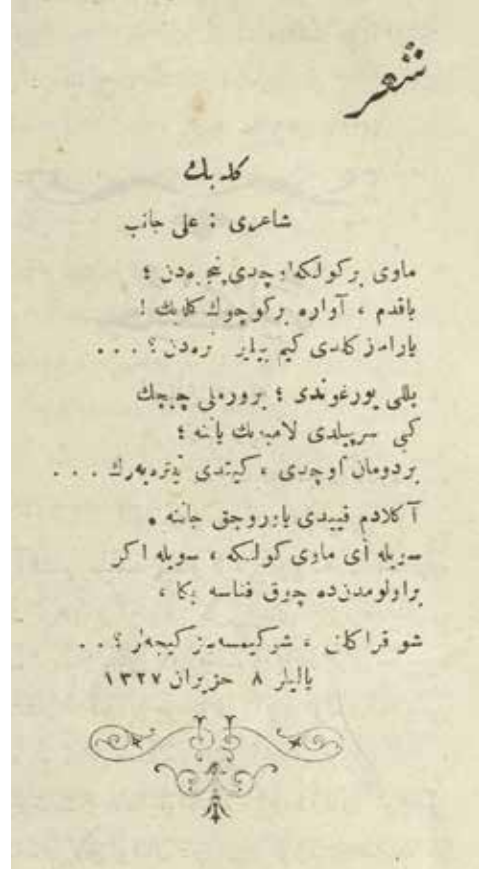 شعر
كله بك
شاعری : علی جانب
ماوی بر كولكه اوچدی پنجره‌دن ؛
باقدم ، آواره بر كوچوك كلبك !
یارامز كلدی كیم بیلیر نره‌دن ؟ . . .
بللی یورغوندی ؛ بروره‌لی چیچك
كبی سرپیلدی لامبه‌نك یاننه ؛
بر دومان اوچدی ، كیتدی تیتره‌یه‌رك . . . .
آكلادم قییدی یاوروجق جاننه .
سویله ای ماوی كولكه ، سویله اكر
بر اولومدن‌ده چوق فناسه بكا ،
شو قراكلق ، شو كیمسه‌سز كیجه‌لر ؟ . .
یالیلر ٨ حزیران ١٣٢٧